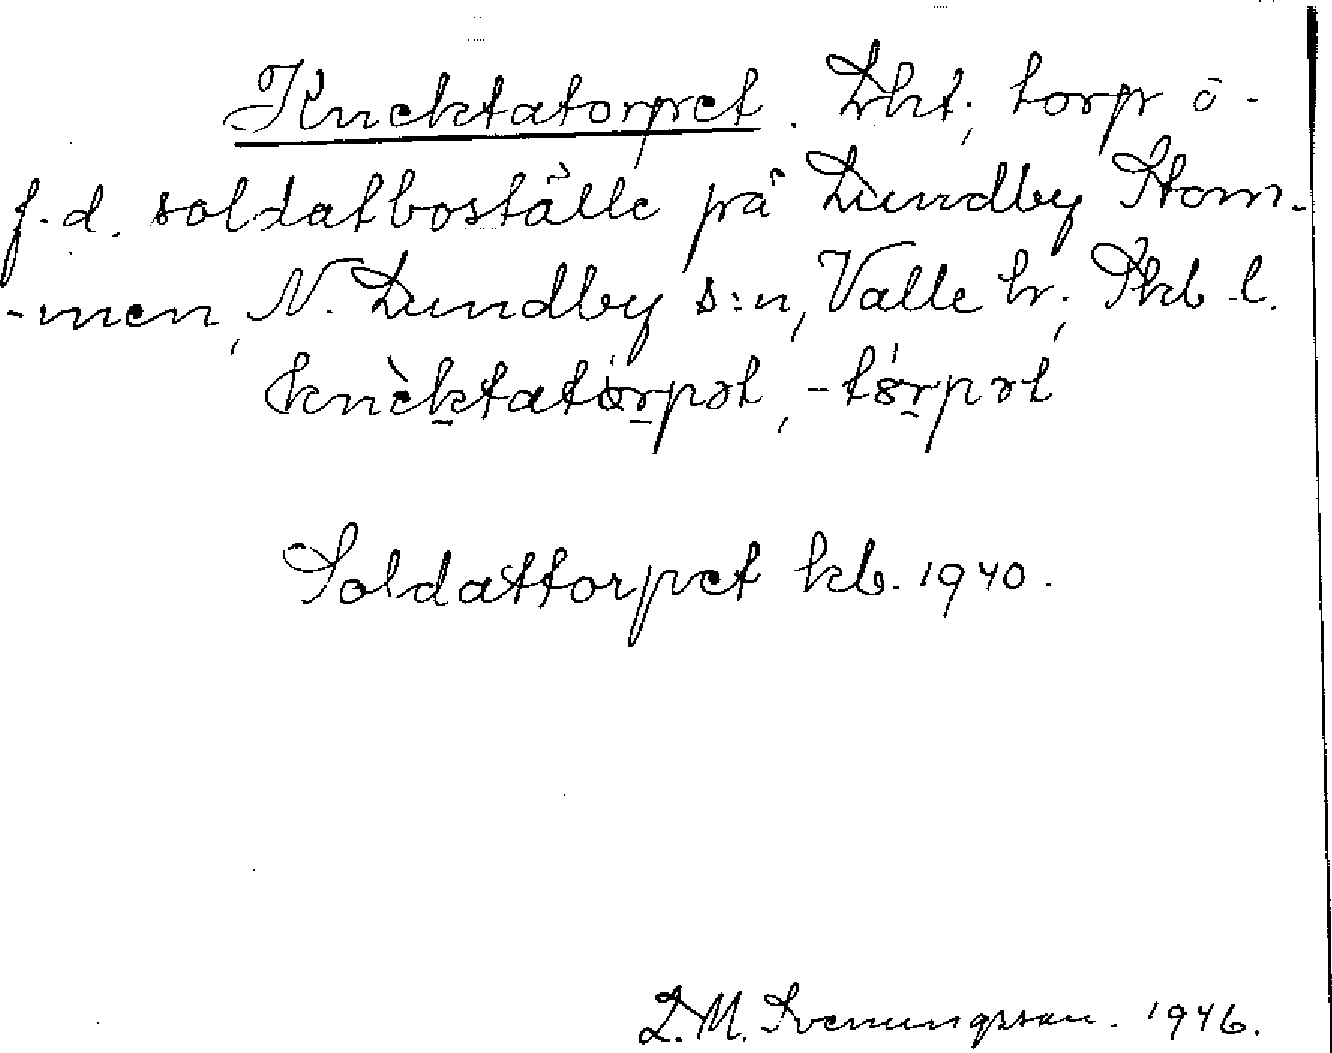 Knektatorpet. Lht, torp o-
f.d. soldatboställe på Lundby Stom-
-men, N. Lundby s:n, Valle hr, Skb l.
knèktatòrpət, -tórpət
Soldattorpet kb. 1940.
D.M. Svenungsson. 1946.